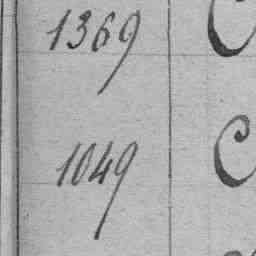 1369 C
1049 C